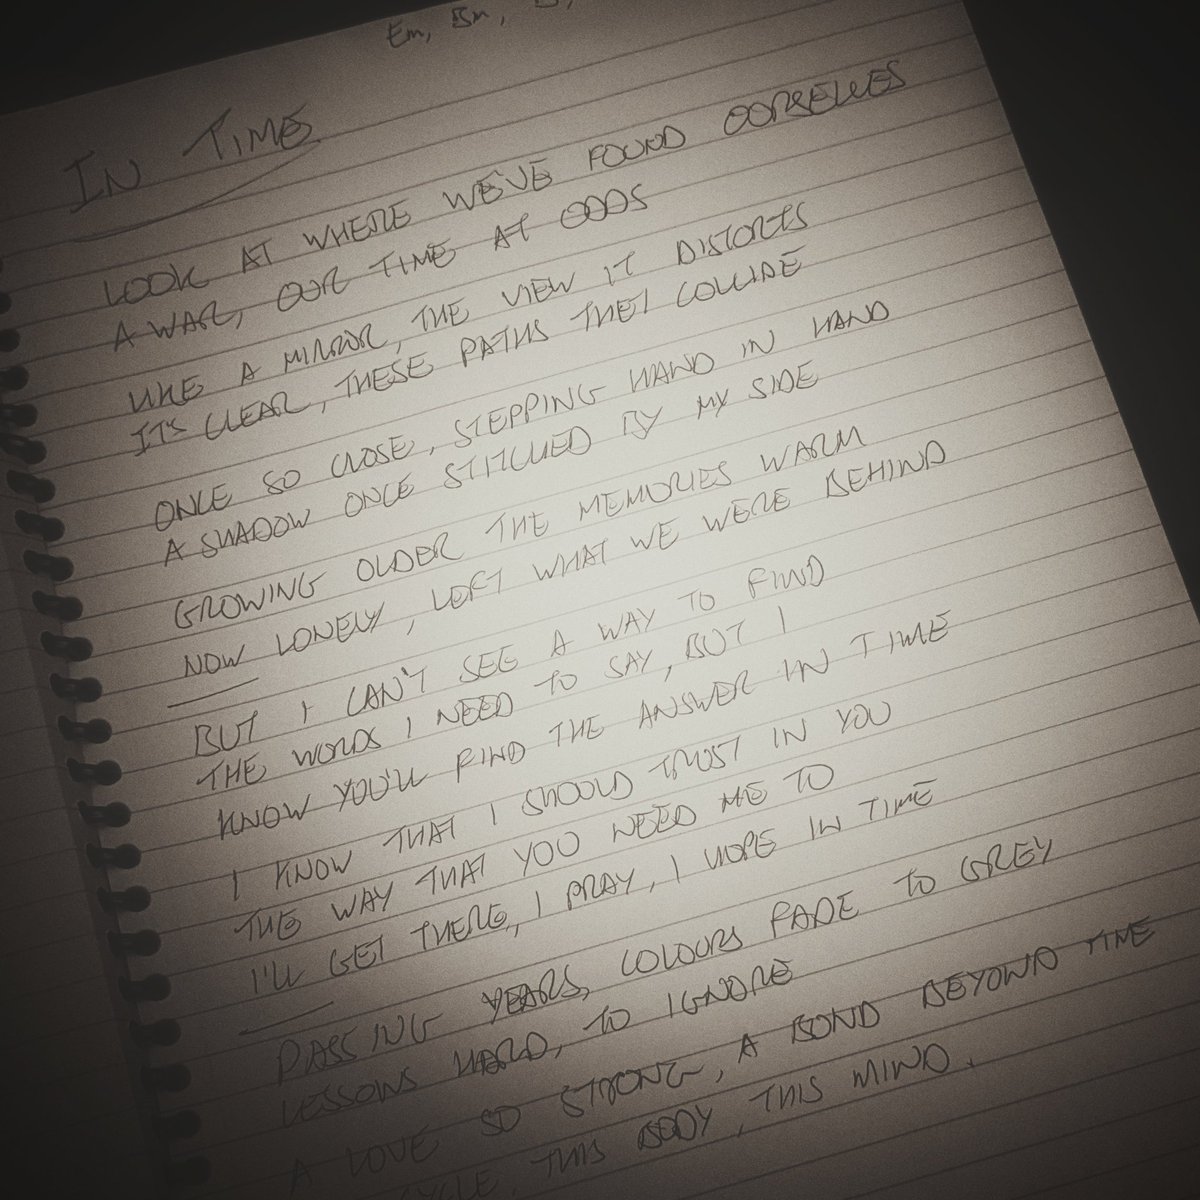 Em, Bm,
IN TIME
LOOK AT WHERE WE'VE FOUND OURSELVES
A WAR, OUR TIME AT ODDS
LIKE A MIRROR, THE VIEW IT DISTORTS
IT'S CLEAR, THESE PATHS THEY COLLIDE
ONCE SO CLOSE, STEPPING HAND IN HAND
A SHADOW ONCE STITCHED BY MY SIDE
GROWING OLDER THE MEMORIES WARM
NOW LONELY, LEFT WHAT WE WERE BEHIND
BUT I CAN'T SEE A WAY TO FIND
THE WORDS I NEED TO SAY, BUT I
KNOW YOU'LL FIND THE ANSWER IN TIME
I KNOW THAT I SHOULD TRUST IN YOU
THE WAY THAT YOU NEED ME TO
I'LL GET THERE, I PRAY, I HOPE IN TIME
PASSING YEARS, COLOURS FADE TO GREY
LESSONS HARD, TO IGNORE
A LOVE SO STRONG, A BOND BEYOND TIME
THIS BODY, THIS MIND.